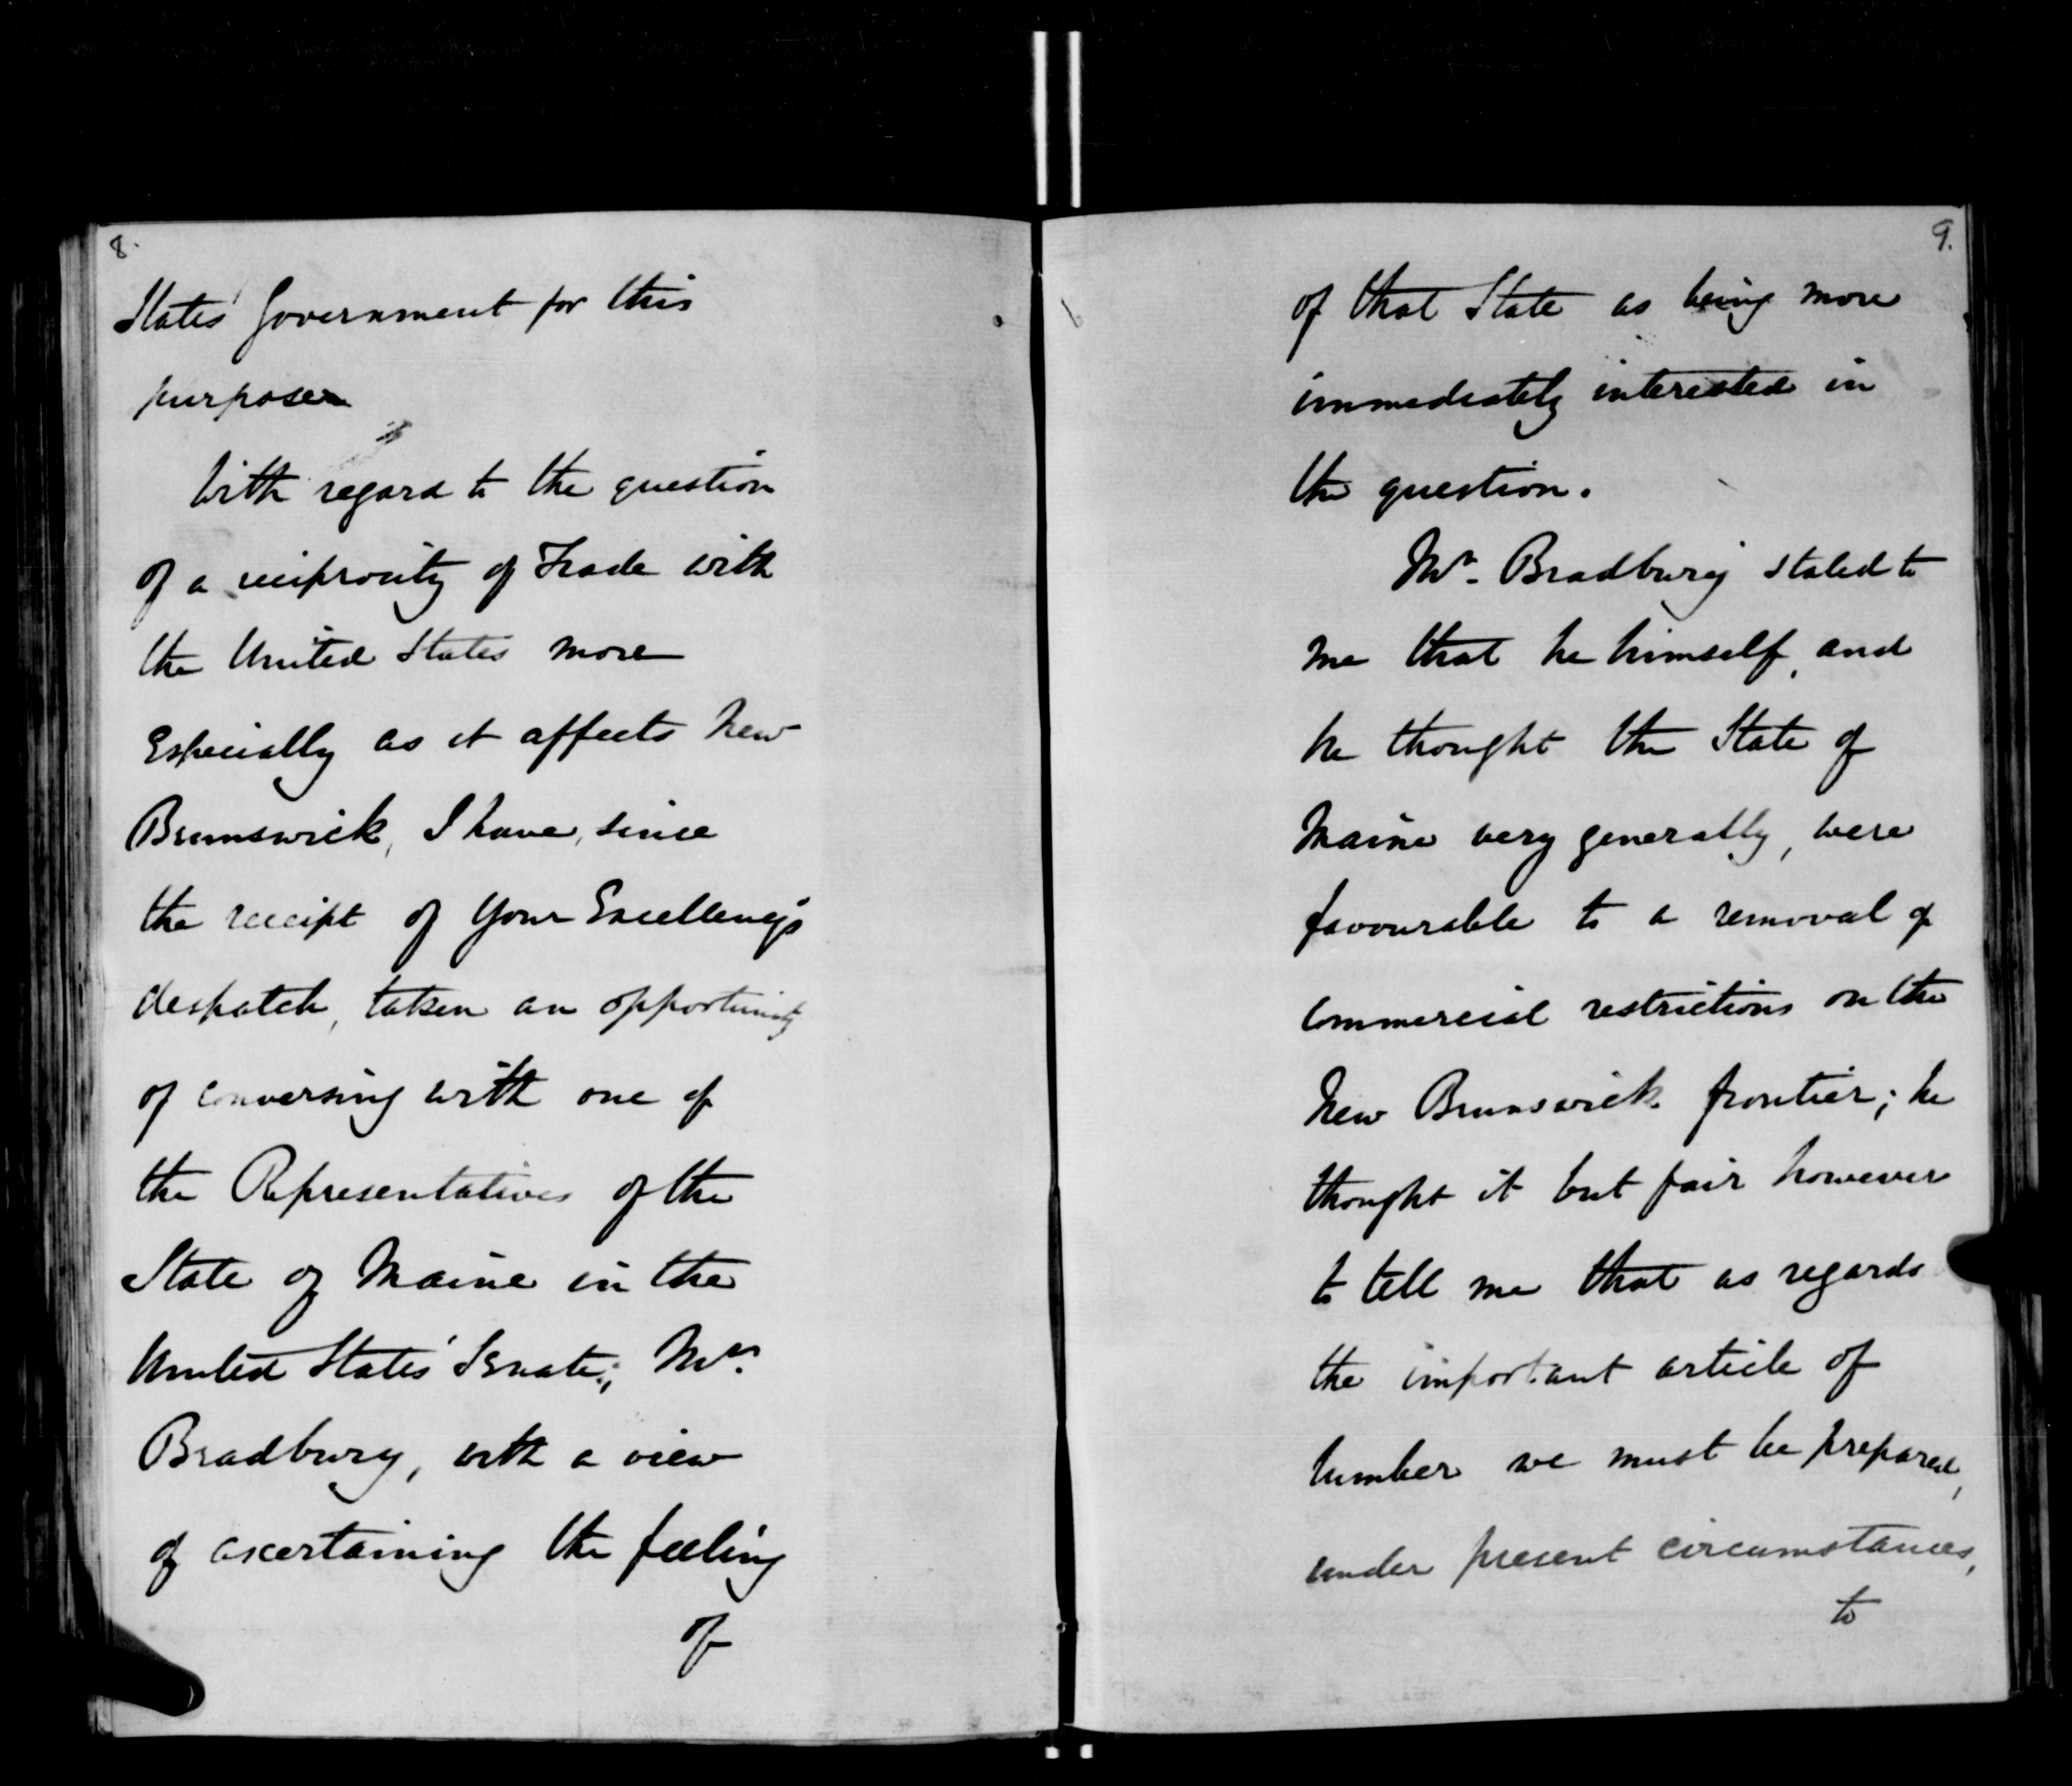 8.
States' Government for this
purpose
With regard to the question
of a reciprocity of Trade with
the United States more
Especially as it affects New
Brunswick, I have, since
the receipt of Your Excellency's
despatch, taken an opportunity
of conversing with one of
the Representatives of the
State of Maine in the
United States' Senate; Mr.
Bradbury, with a view
of ascertaining the feeling
of
9.
of that State as being more
immediately interested in
the question.
Mr. Bradbury stated to
me that he himself, and
he thought the State of
Maine very generally, were
favourable to a removal of
Commercial restrictions on the
New Brunswick frontier; he
thought it but fair however
to tell me that as regards
the important article of
lumber we must be prepared,
under present circumstances,
to